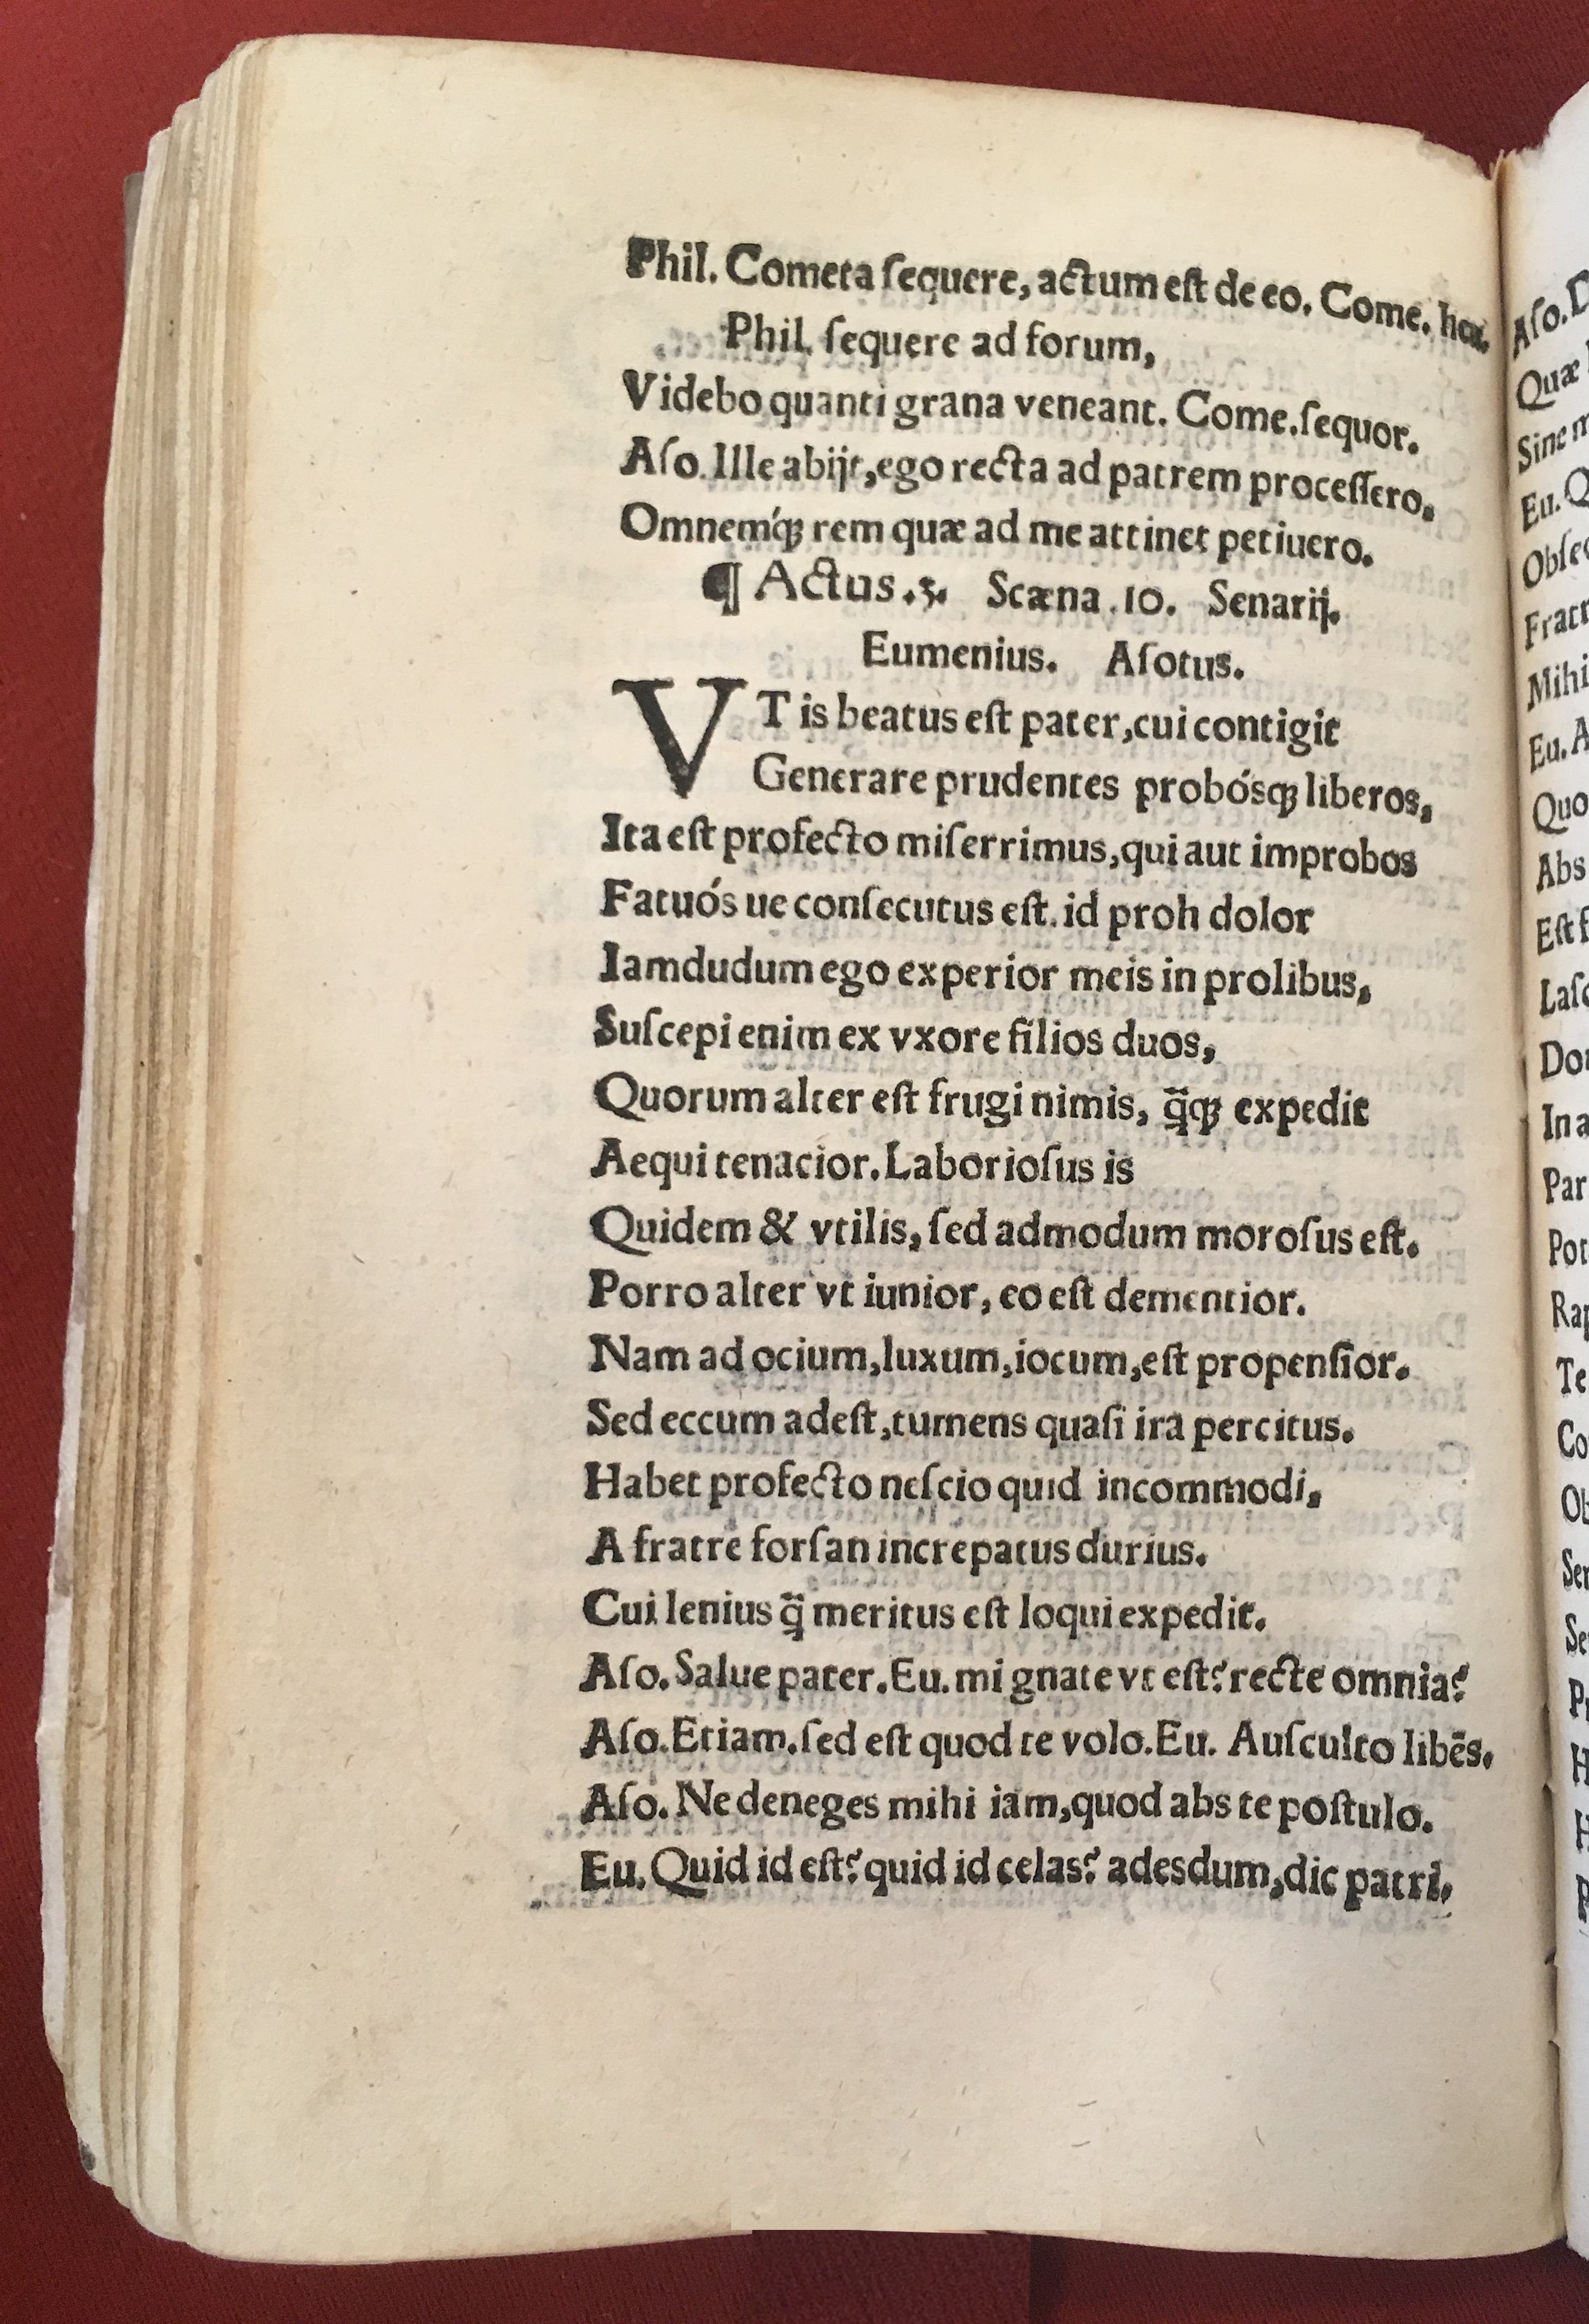 Phil. Cometa ſequere, actum eſt de eo. Come. hea.
Phil. ſequere ad forum,
Videbo quanti grana veneant. Come.ſequor.
Aſo. Ille abijt,ego recta ad patrem proceſſero,
Omnemq́ꝫ rem quæ ad me attinet petiuero.
¶ Actus.3. Scæna .10. Senarij.
Eumenius. Aſotus.
VT is beatus eſt pater,cui contigit
Generare prudentes probósqꝫ liberos,
Ita eſt profecto miſerrimus,qui aut improbos
Fatuós ue conſecutus eſt. id proh dolor
Iamdudum ego experior meis in prolibus,
Suſcepi enim ex vxore filios duos,
Quorum alter eſt frugi nimis, q̃qꝫ expedit
Aequi tenacior. Laborioſus is
Quidem & vtilis, ſed admodum moroſus eſt.
Porro alter vt iunior, eo eſt dementior.
Nam ad ocium,luxum,iocum,eſt propenſior.
Sed eccum adeſt,tumens quaſi ira percitus.
Habet profecto neſcio quid incommodi,
A fratre forſan increpatus durius.
Cui lenius q̃ meritus eſt loqui expedit.
Aſo. Salue pater. Eu. mi gnate vt eſt? recte omnia?
Aſo. Etiam. ſed eſt quod te volo. Eu. Auſculto libēs.
Aſo. Ne deneges mihi iam,quod abs te poſtulo.
Eu. Quid id eſt? quid id celas? adesdum,dic patri.
Aſo.
Quæ
Sine
Eu.
Mihi
Eu. A
Quo
Abs
In a
Par
Te